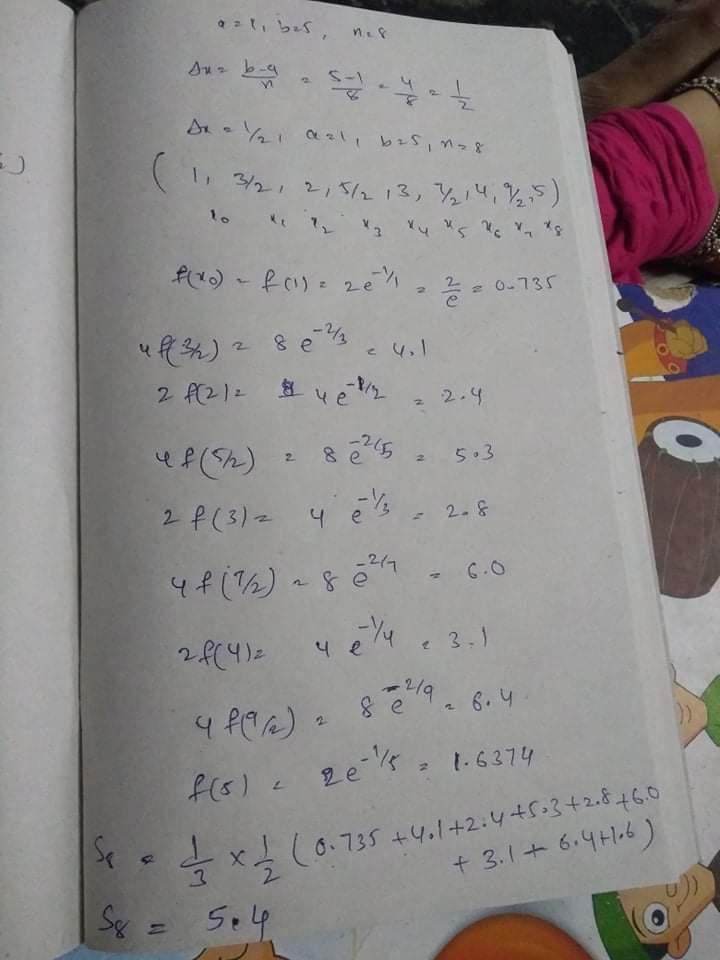 a=1, b=5, n=8
Δx = b-a/n = 5-1/8 = 4/8 = 1/2
Δx = 1/2, a=1, b=5, n=8
(1, 3/2, 2, 5/2, 3, 7/2, 4, 9/2, 5)
x₀ x₁ x₂ x₃ x₄ x₅ x₆ x₇ x₈
f(x₀) = f(1) = 2e^-1/1 = 2/e = 0.735
4f(3/2) = 8e^-2/3 = 4.1
2f(2) = 4e^-1/2 = 2.4
4f(5/2) = 8e^-2/5 = 5.3
2f(3) = 4e^-1/3 = 2.8
4f(7/2) = 8e^-2/7 = 6.0
2f(4) = 4e^-1/4 = 3.1
4f(9/2) = 8e^-2/9 = 6.4
f(5) = 2e^-1/5 = 1.6374
S₈ = 1/3 × 1/2 (0.735 + 4.1 + 2.4 + 5.3 + 2.8 + 6.0
+ 3.1 + 6.4 + 1.6)
S₈ = 5.4